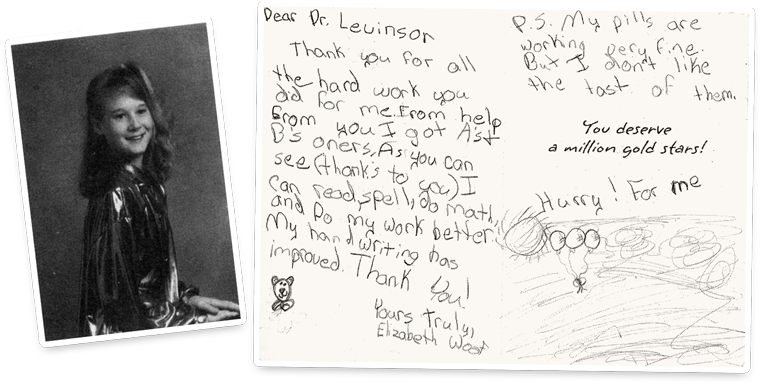 Dear Dr. Levinson
Thank you for all
the hard work you
did for me. From help
From you I got A's +
B's oners, As you can
see (thank's to you) I
can read, spell, do math,
and Do my work better.
My hand writing has
improved. Thank You!
Yours truly,
Elizabeth
P.S. My pills are
working very fine.
But I don't like
the tast of them.
You deserve
a million gold stars!
Hurry! For me